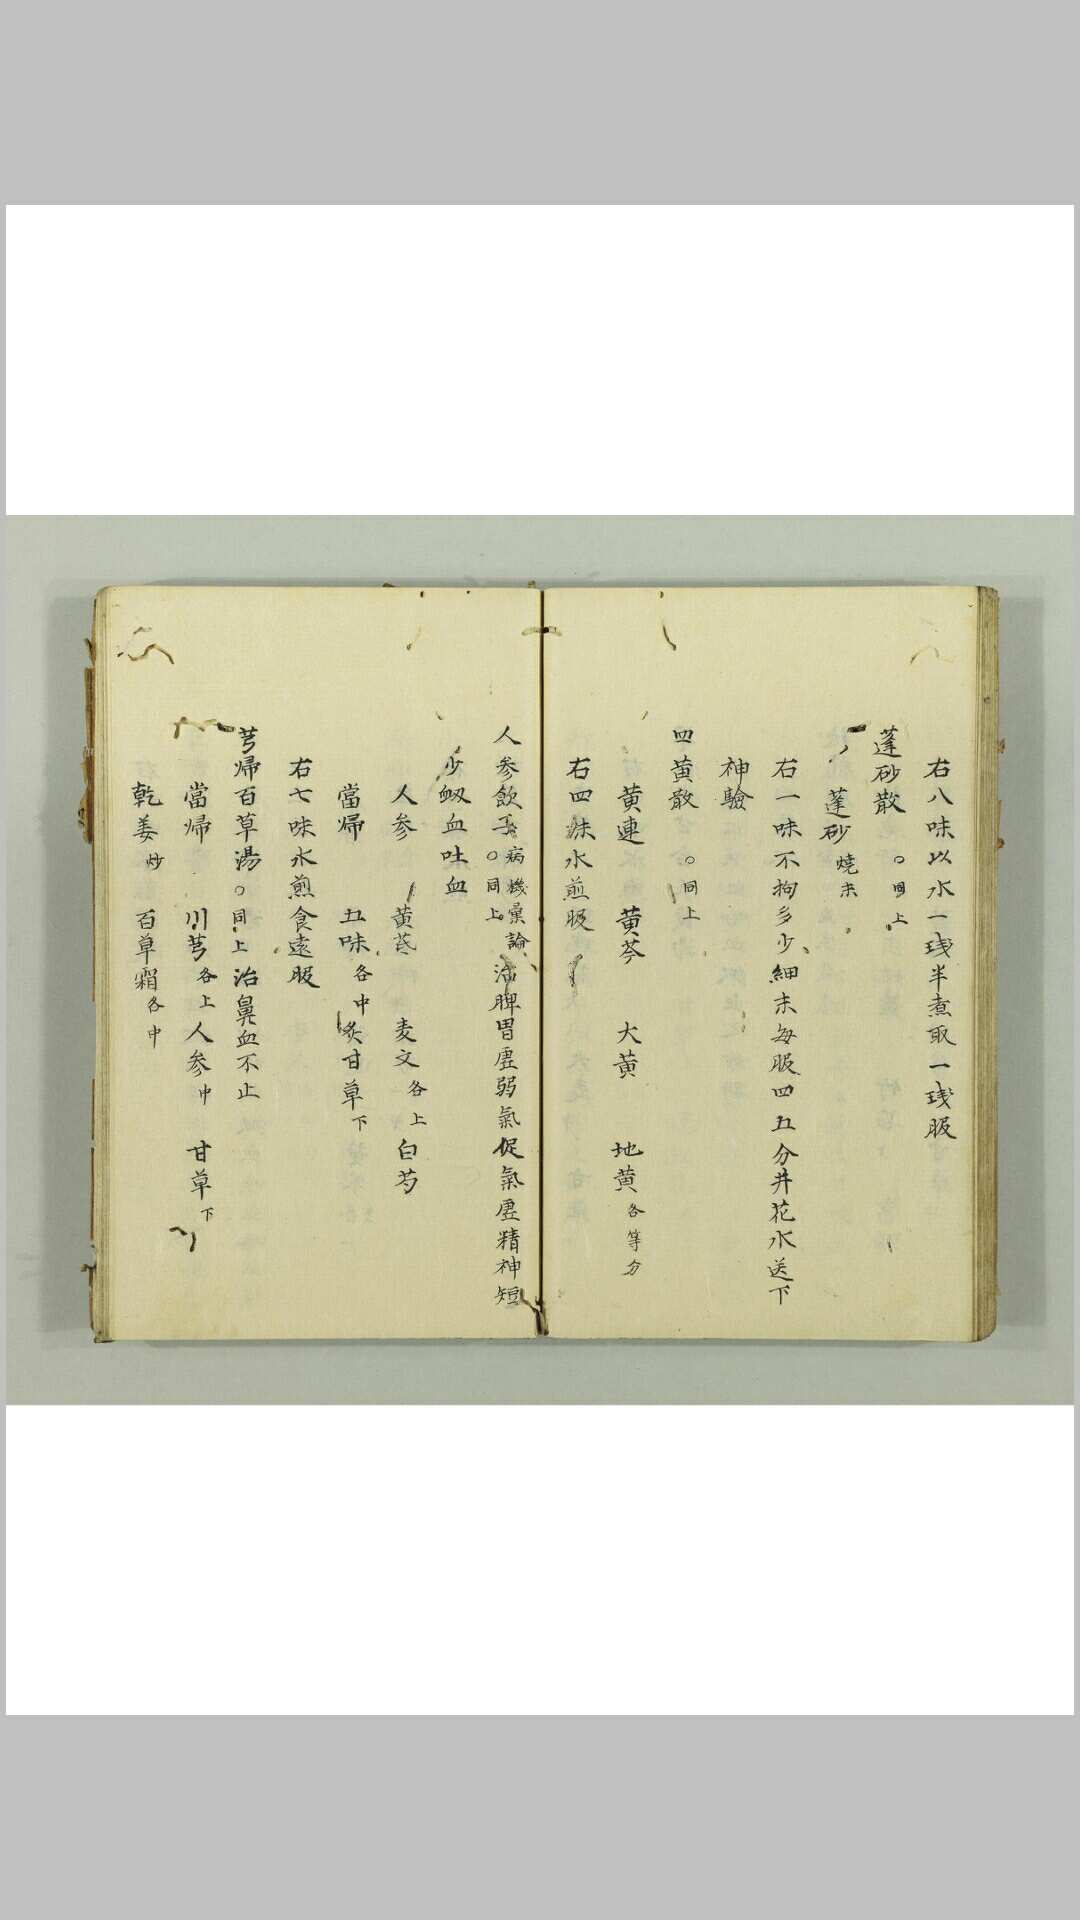 右八味以水一琖半煮取一琖服
蓬砂散 ○同上
蓬砂燒末
右一味不拘多少細末每服四五分井花水送下
神驗
四黄散 ○同上
黄連 黄芩 大黄 地黄各等分
右四味水煎服
人参飲子病機彙論○同上 治脾胃虚弱氣促氣虚精神短
少衂血吐血
人参 黄芪 麦文各上 白芍
當帰 五味各中 炙甘草下
右七味水煎食遠服
芎帰百草湯○同上 治鼻血不止
當帰 川芎各上 人参中 甘草下
乾姜炒 百草霜各中